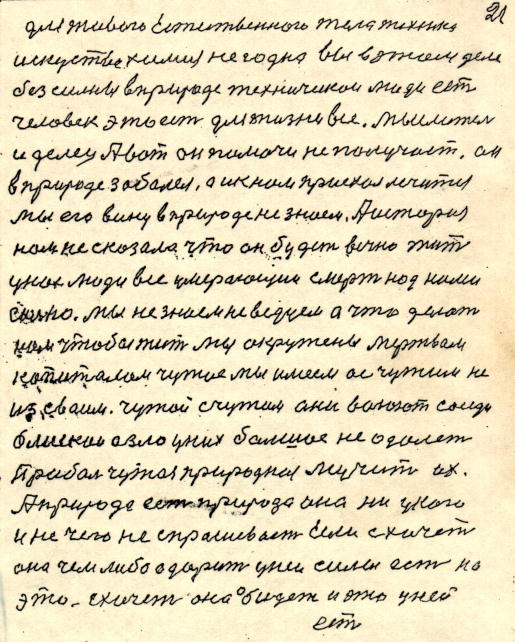 21
для живого Естественного тела техника
искуства химия не годна вы в этом деле
без силны в природе техническои люди ест
человек это ест для жизни все. мы можем
и делеи А вот он помочи не получает. он
в природе заболел, а и к нам приехал лечится
мы его вину в природе не знаем. А история
нам не сказала что он будет вечно жит
у нах люди все умерающии смерт над нами
силно. мы не знаем не ведуем а что делат
нам чтобы жит мы окружены мертвым
капиталом чужое мы имеем ос чужим не
из сваим. чужой счужим они воюют соиди
блискои азло у них болшое не одолет
Прабал чужая природная мучит их.
А природа ест природа она ни у кого
и не чего не спрашивает Если схочет
она чем либо одарит у неи силы ест на
это. схочет она обидет и это у ней
ест